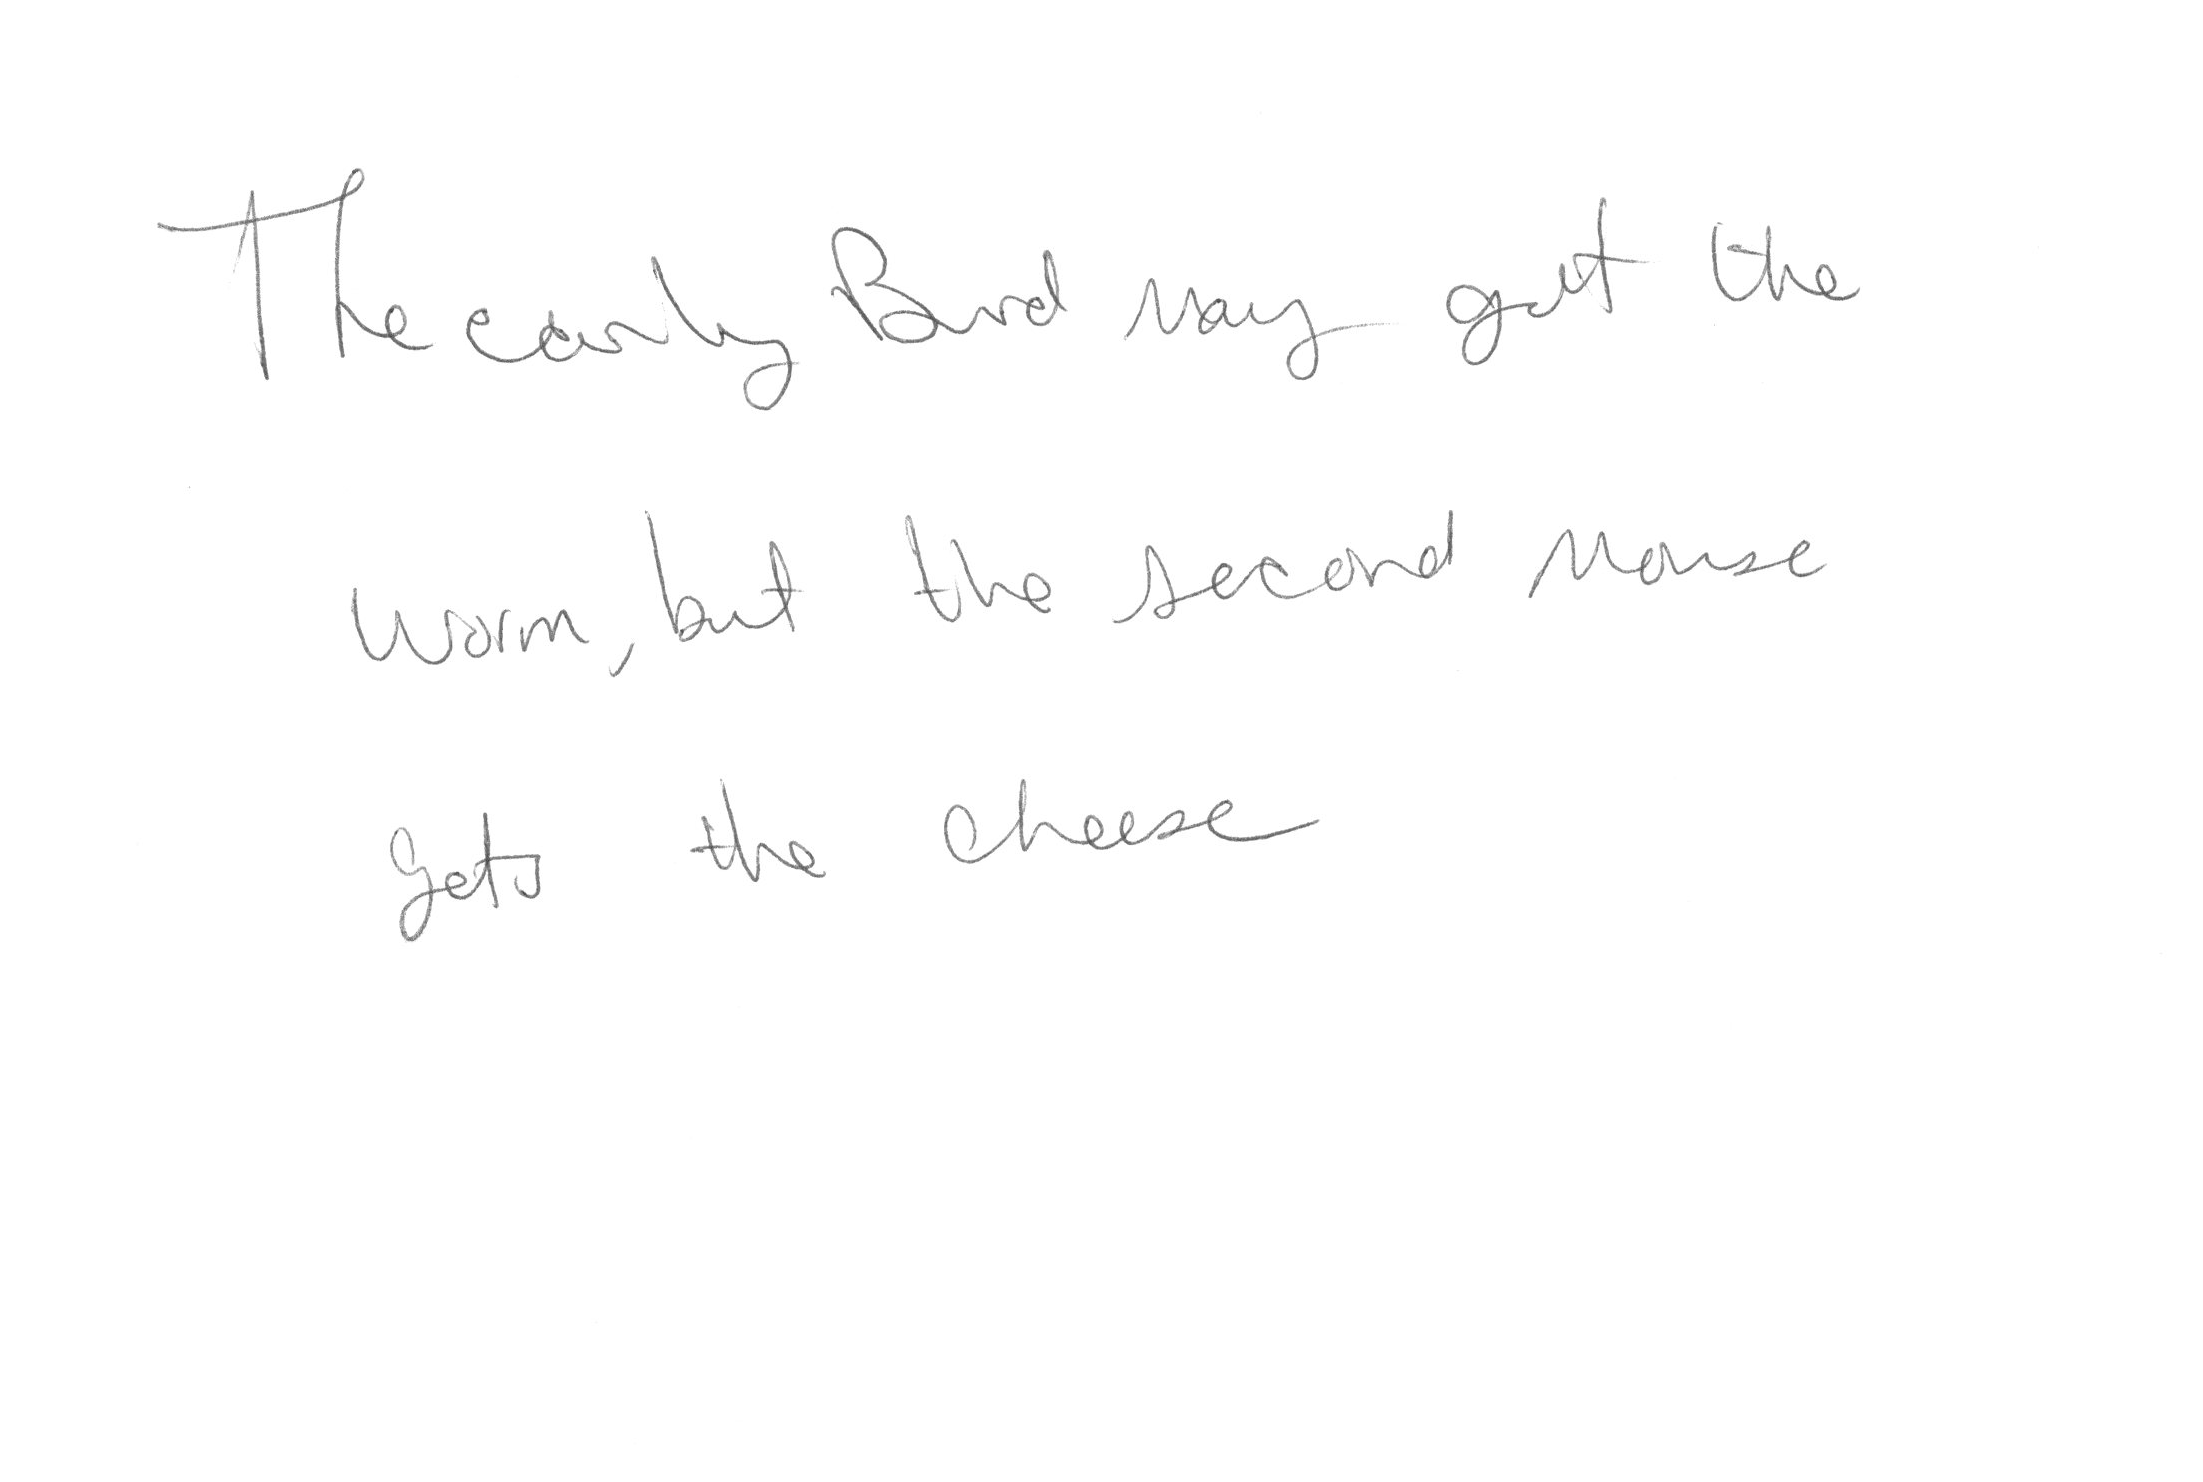 The early Bird may get the
worm, but the second mouse
gets the cheese